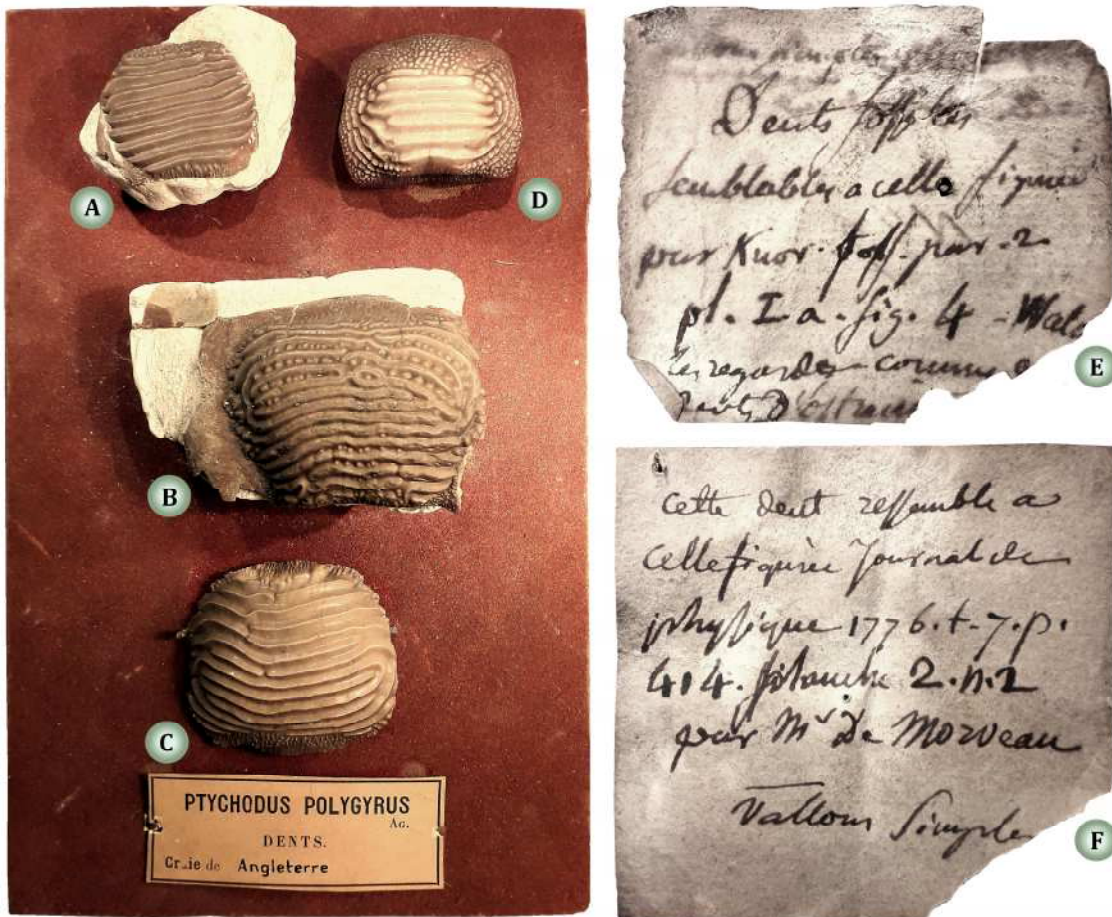 A
D
B
C
PTYCHODUS POLYGYRUS
AG.
DENTS.
Craie de Angleterre
Dents fossiles
semblables a celle figurée
par Knor. foss. par. 2
pl. I a. fig. 4 - Wal
les regardes comme
E
cette dent ressemble a
celle figurée Journal de
physique 1776. t. 7. p.
414. planche 2. n. 2
par Mr De Morveau
Vallons Simple
F